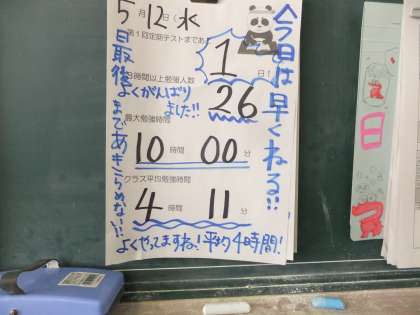 5月12日(水)
第1回定期テストまであと
1日!
3時間以上勉強人数
よくがんばりました!!
26
最大勉強時間
10時間00分
クラス平均勉強時間
4時間11分
よくやってますね!平均4時間!
今日は早くねる!!
最後まであきらめない!!
日